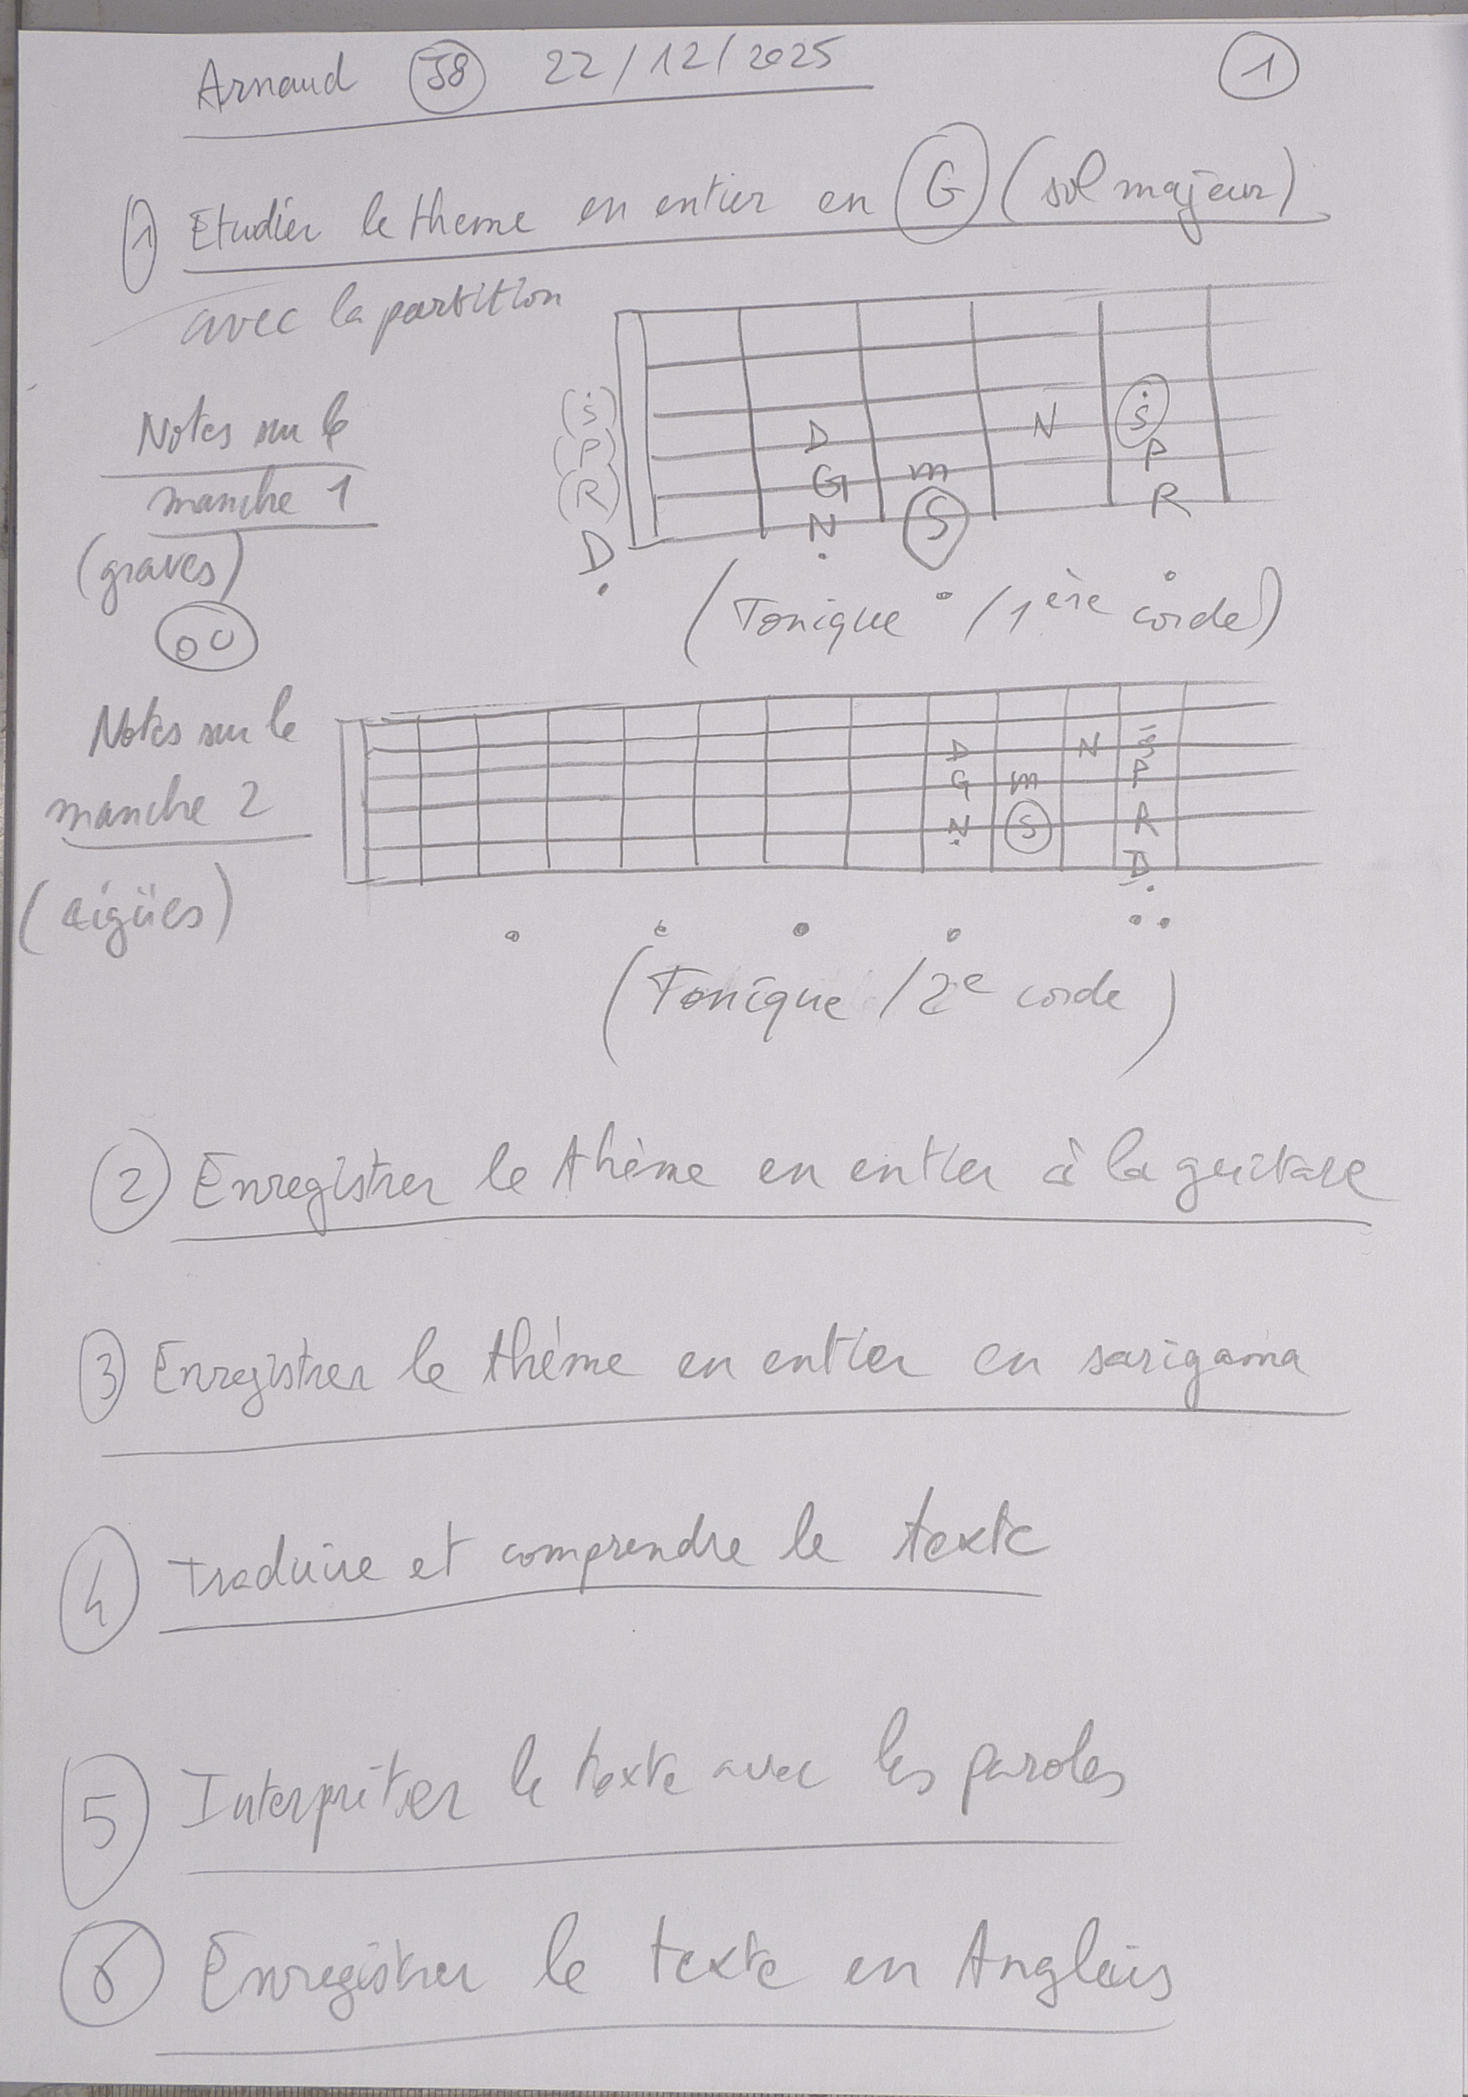 Arnaud 58 22/12/2025
1
1 Etudier le theme en entier en G (sol majeur)
avec la partition
Notes sur le
manche 1
(graves)
(Ṡ)
(P)
(R)
Ḍ
D N Ṡ
G m P
Ṇ S R
(Tonique / 1ère corde)
Notes sur le
manche 2
(aigües)
D N Ṡ
G m P
Ṇ S R
Ḍ
(Tonique / 2e corde)
2 Enregistrer le thème en entier à la guitare
3 Enregistrer le thème en entier en sarigama
4 Traduire et comprendre le texte
5 Interpréter le texte avec les paroles
6 Enregistrer le texte en Anglais